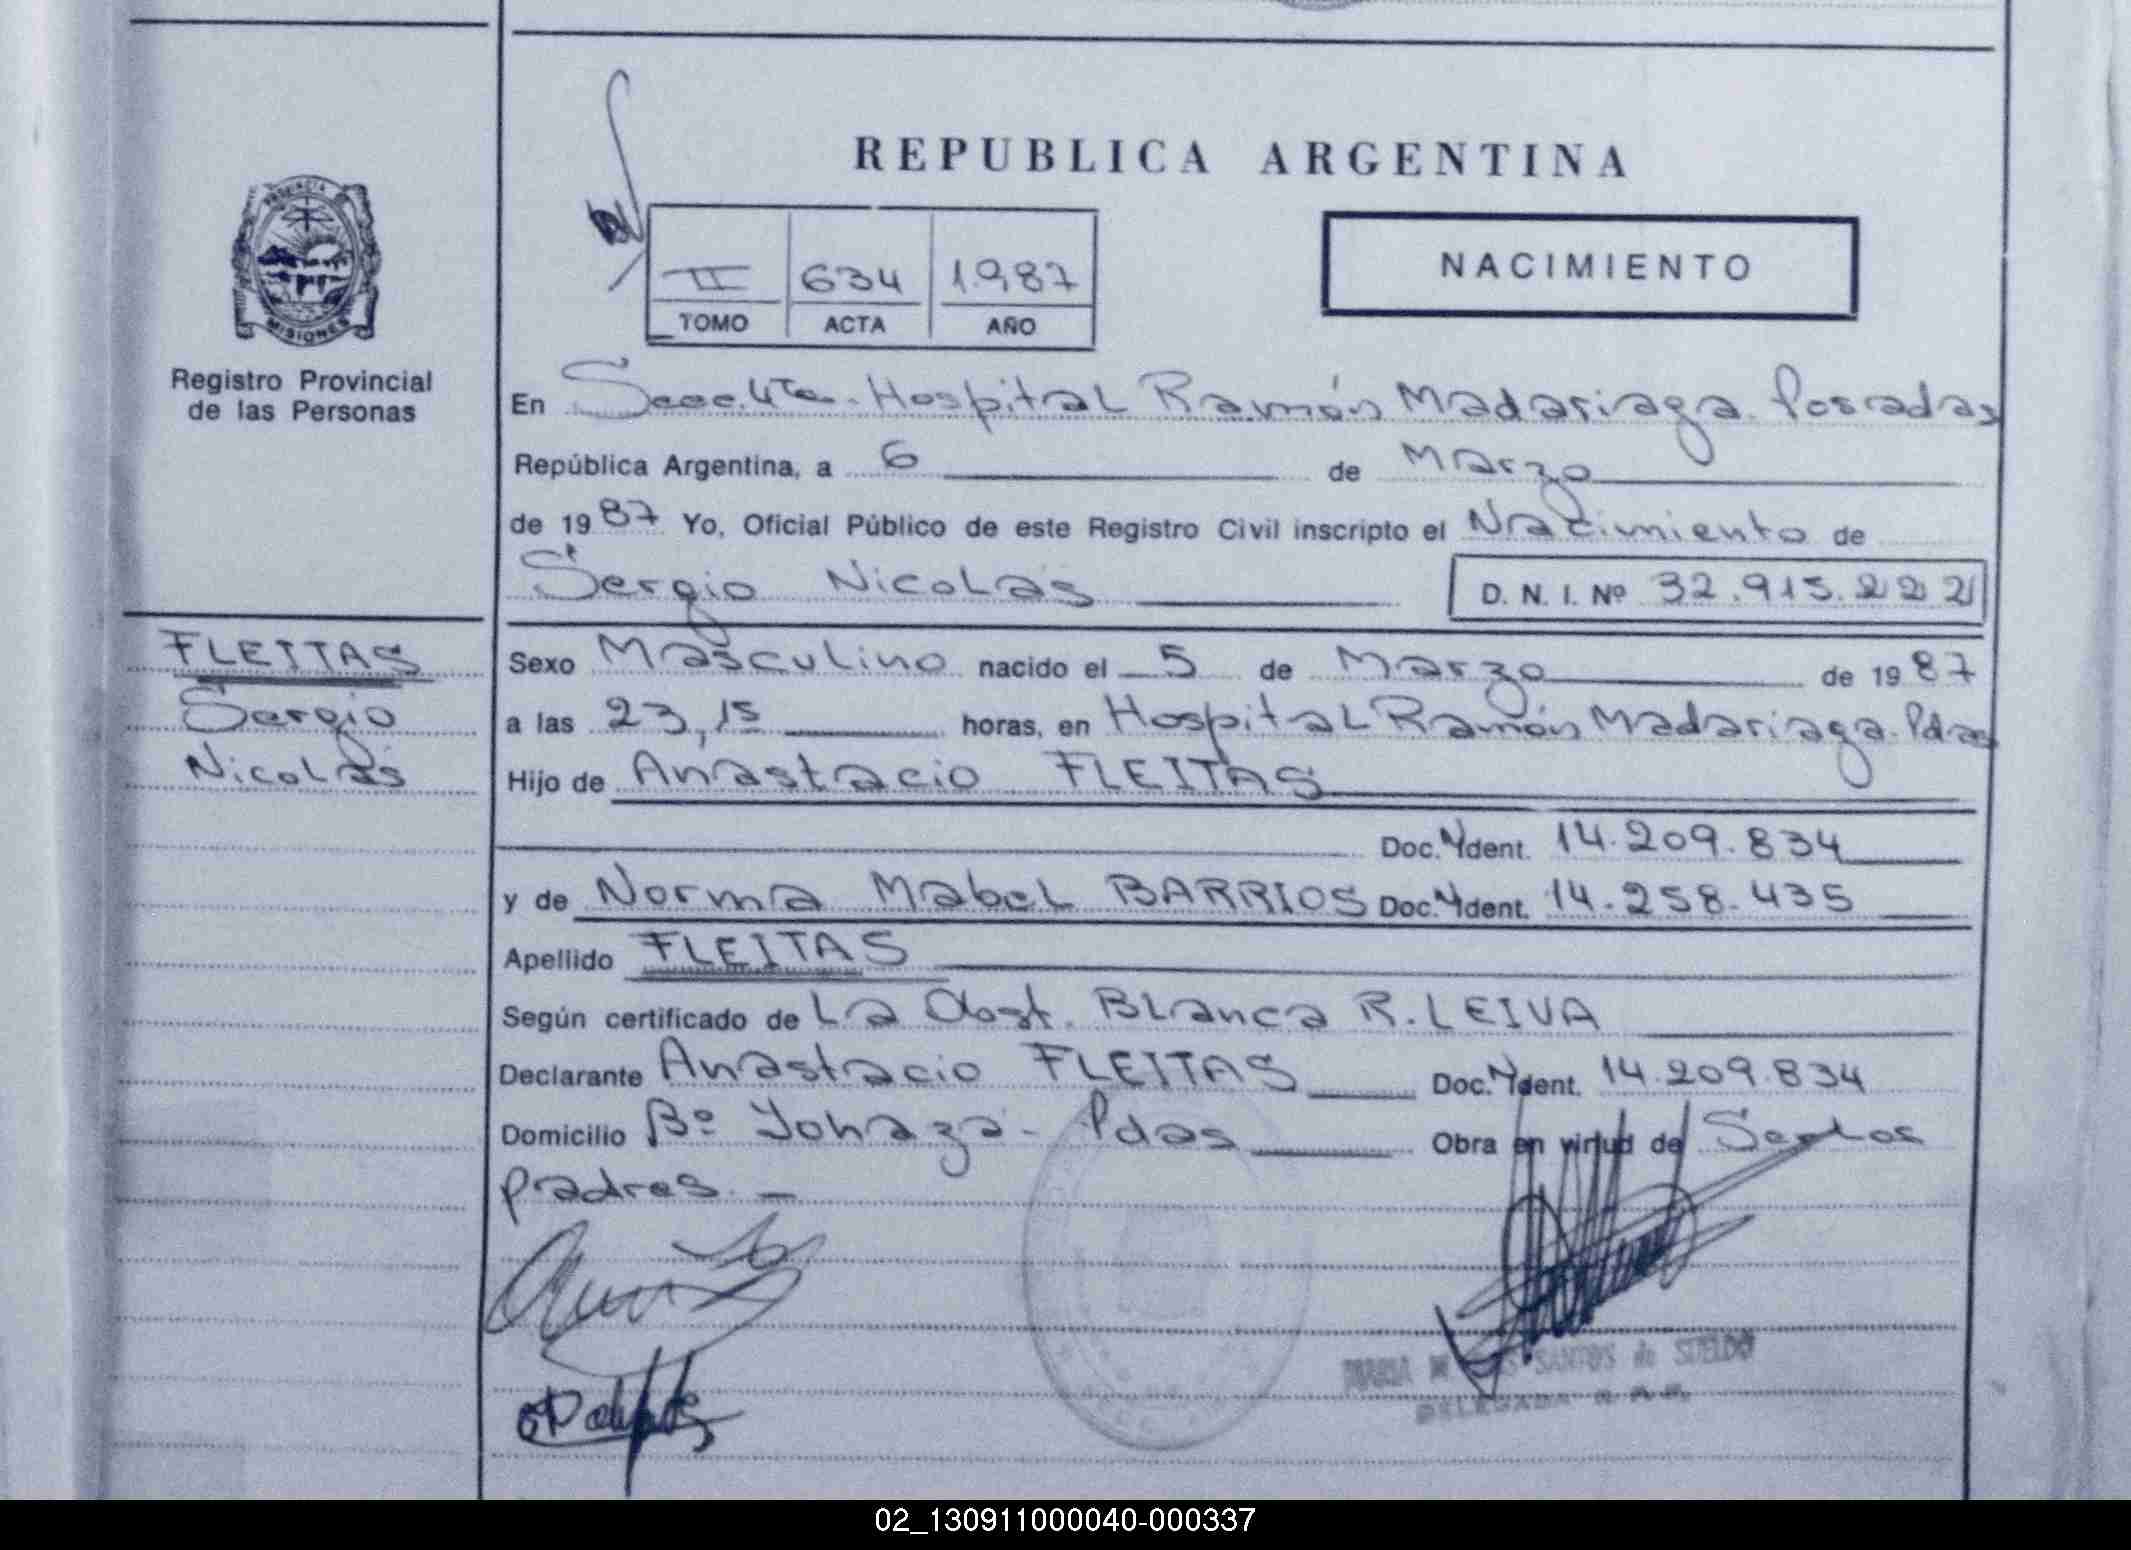 REPUBLICA ARGENTINA
PROVINCIA DE
MISIONES
Registro Provincial
de las Personas
II 634 1.987
TOMO ACTA AÑO
NACIMIENTO
En Secc. 4ta. Hospital Ramón Madariaga. Posadas
República Argentina, a 6 de Marzo
de 1987 Yo, Oficial Público de este Registro Civil inscripto el Nacimiento de
Sergio Nicolás D. N. I. Nº 32.915.222
FLEITAS
Sergio
Nicolás
Sexo Masculino nacido el 5 de Marzo de 1987
a las 23,15 horas, en Hospital Ramón Madariaga. Pdas
Hijo de Anastacio FLEITAS
Doc. Ydent. 14.209.834
y de Norma Mabel BARRIOS Doc. Ydent. 14.258.435
Apellido FLEITAS
Según certificado de La Obst. Blanca R. LEIVA
Declarante Anastacio FLEITAS Doc. Ydent. 14.209.834
Domicilio Bº Yohazá - Pdas Obra en virtud de Ser los
padres. -
SANTOS de SUELDO
DELEGADA
02_130911000040-000337